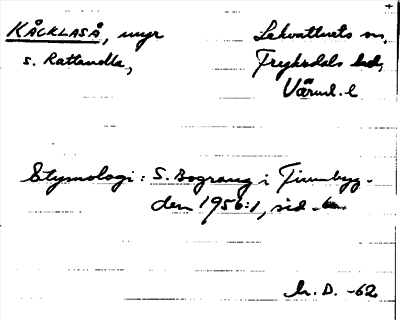 KÅCKLASÅ, myr
Lekvattnets sn,
s. Rattandla,
Fryksdals hd,
Värml. l
Etymologi: S. Bograng i Finnbyg-
den 1956:1, sid
h. D. -62